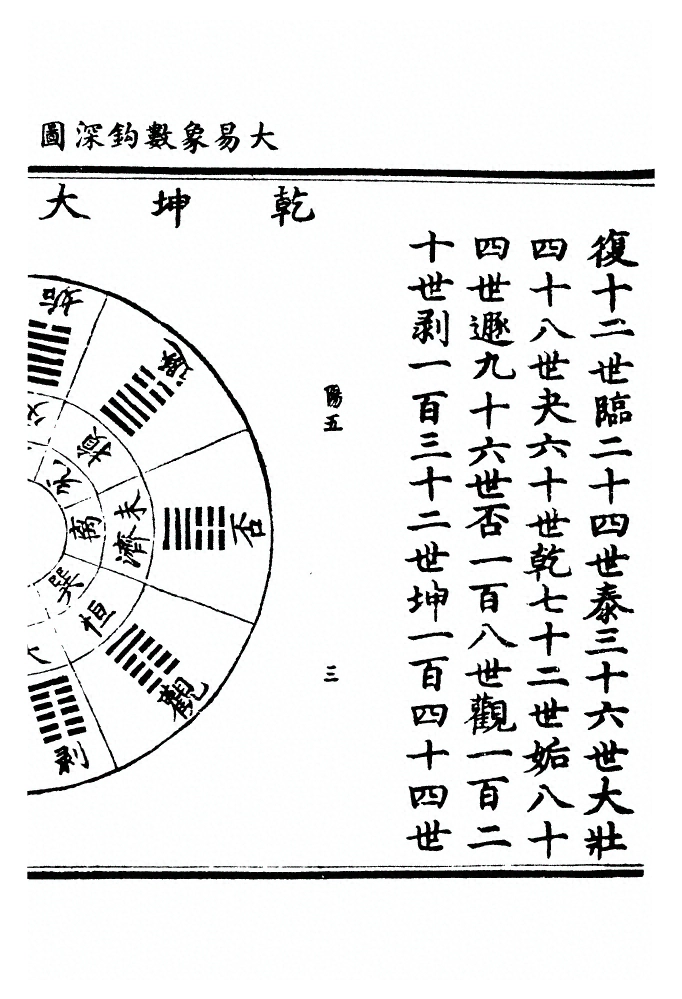 大易象數鈎深圖
復十二世臨二十四世泰三十六世大壯
四十八世夬六十世乾七十二世姤八十
四世遯九十六世否一百八世觀一百二
十世剥一百三十二世坤一百四十四世
陽五
三
乾坤大
姤
遯
否
觀
剥
損
未濟
恒
离
巽